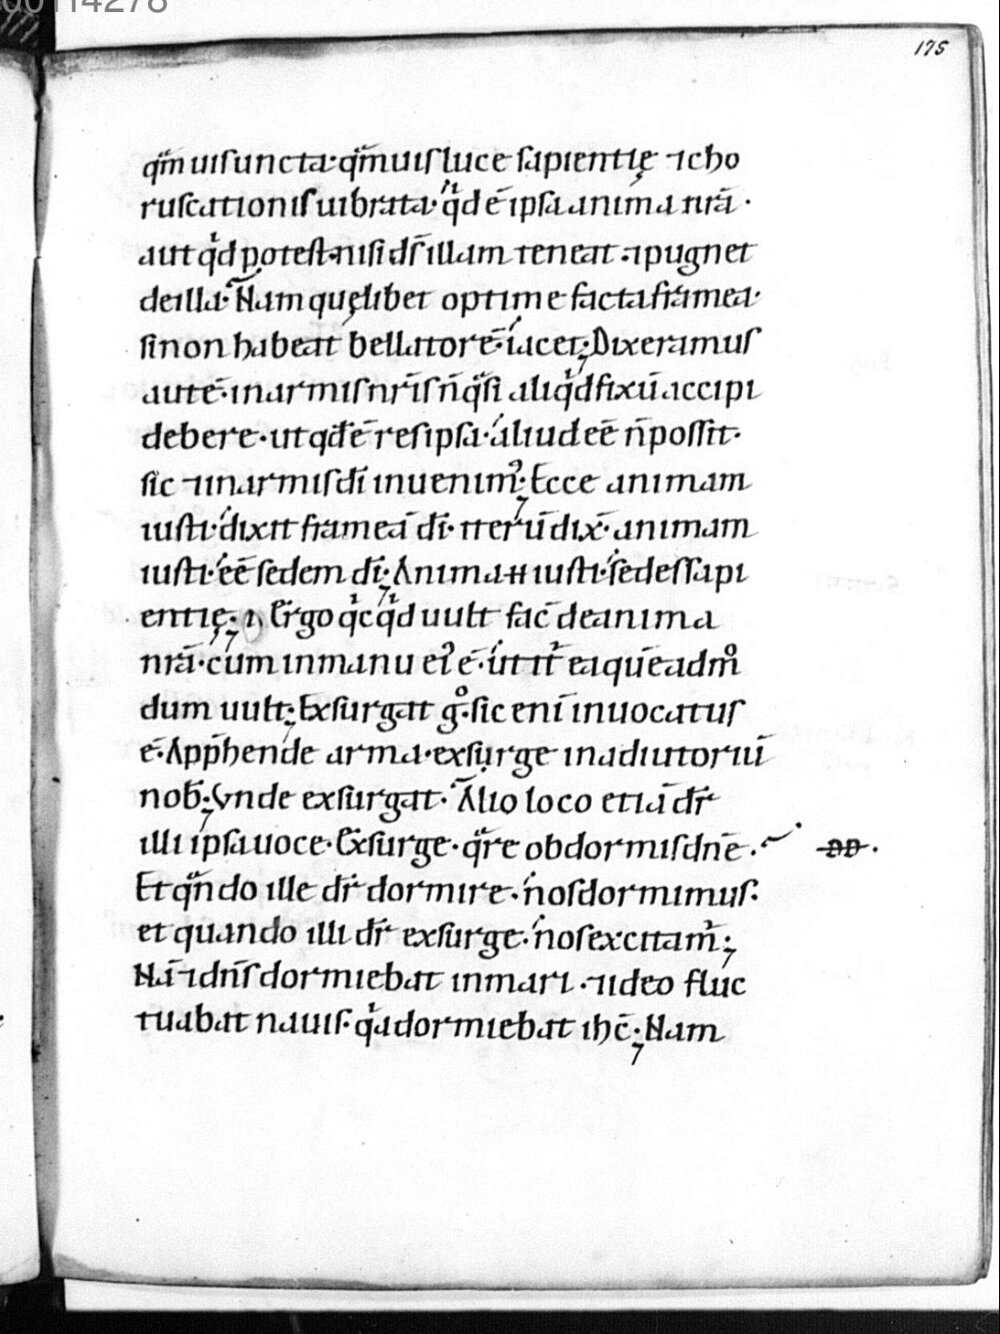 00114278
175
qm̄ uiſuncta· qm̄uiſ luce ſapientię ⁊cho
ruſcationiſ uibrata· qd ē ipſa anima nrā·
aut qd poteſt· niſi dſ̄ illam teneat ·⁊pugnet
deilla· Nam quęlibet optime facta framea·
ſi non habeat bellatorē· iacet; Dixeramuſ
autē· in armiſ nrīſ n̄ qſi aliqd fixū accipi
debere· ut qd̄ ē reſ ipſa· aliud eē n̄ poſſit·
ſic ⁊ in armiſ dī inuenim᾽; Ecce animam
iuſti· dixit frameā dī· iterū dix̄· animam
iuſti· eē ſedem dī; Anima iuſti· ſedeſ ſapi
entię; Ergo qcqd uult fac̄ de anima
nrā· cum in manu ei᾽ ē· utit᾽ ea quēadmo
dum uult; Exſurgat go· ſic enī inuocatuſ
ē· Appͬhende arma· exſurge in adiutoriū
nob̄; Vnde exſurgat· Alio loco etiā dr̄
illi ipſa uoce· Exſurge· qre obdormiſ dnē·
DD·
Et qn̄do ille dr̄ dormire· noſ dormimuſ·
et quando illi dr̄ exſurge· noſ excitam᾽;
Nā ⁊ dnſ̄ dormiebat in mari· ⁊ ideo fluc
tuabat nauiſ· qa dormiebat ihc̄; Nam